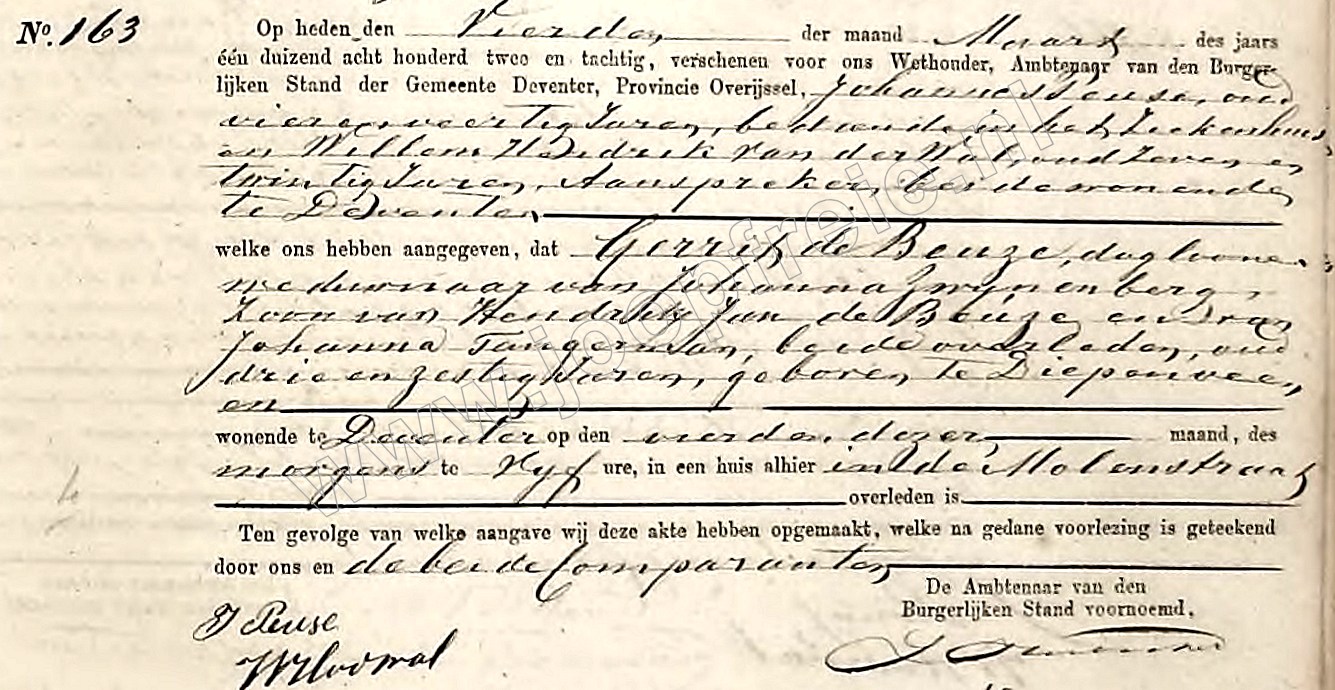 No. 163
Op heden den Vierden der maand Maart des jaars
één duizend acht honderd twee en tachtig, verschenen voor ons Wethouder, Ambtenaar van den Burger-
lijken Stand der Gemeente Deventer, Provincie Overijssel, Johannes Peuse, oud
vierenveertig Jaren, bediende in het Ziekenhuis,
en Willem Hendrik van der Wal oud Zeven en
twintig Jaren, Aanspreker, beide wonende
te Deventer
welke ons hebben aangegeven, dat Gerrit de Beuze, daglooner
weduwnaar van Johanna Zwijnenberg,
Zoon van Hendrik Jan de Beuze en van
Johanna Tangerman, beide overleden, oud
drie en zestig Jaren, geboren te Diepenveen
en
wonende te Deventer op den vierden dezer maand, des
morgens te Vijf ure, in een huis alhier in de Molenstraat
overleden is
Ten gevolge van welke aangave wij deze akte hebben opgemaakt, welke na gedane voorlezing is geteekend
door ons en de beide Comparanten
De Ambtenaar van den
Burgerlijken Stand voornoemd.
J Peuse
www.joepfreie.nl